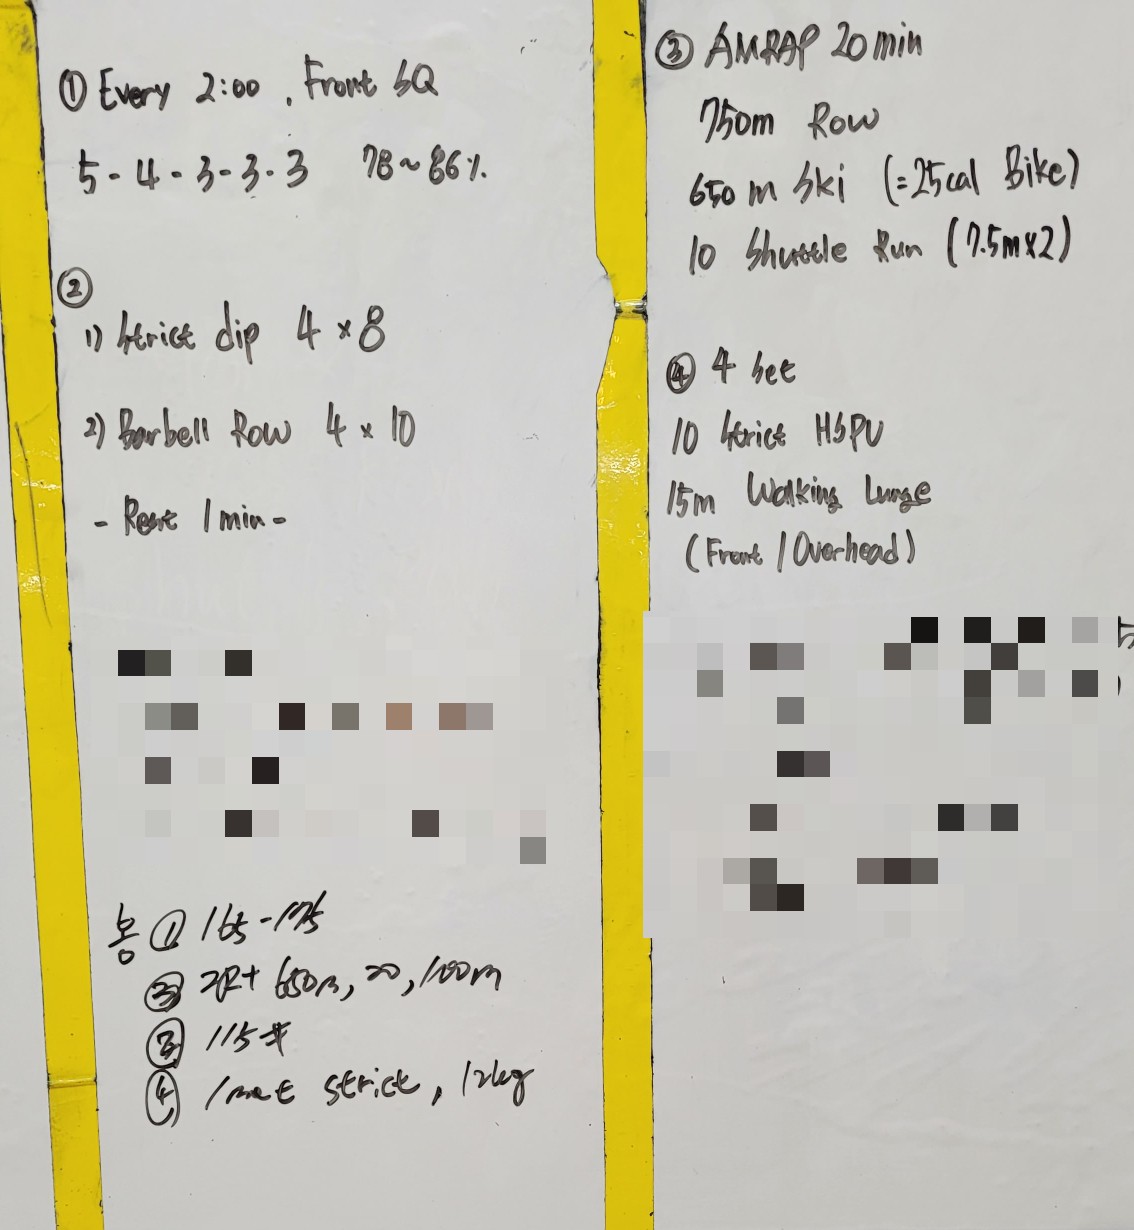 ① Every 2:00, Front SQ
5-4-3-3-3 78~86%
②
1) Strict dip 4 x 8
2) Barbell Row 4 x 10
- Rest 1 min -
봉 ① 165-175
③ 2R+ 650m, 20, 100m
② 115#
④ 1mat strict, 12kg
③ AMRAP 20 min
750m Row
650m Ski (=25cal Bike)
10 Shuttle Run (7.5m x 2)
④ 4 Set
10 Strict HSPU
15m Walking Lunge
(Front / Overhead)